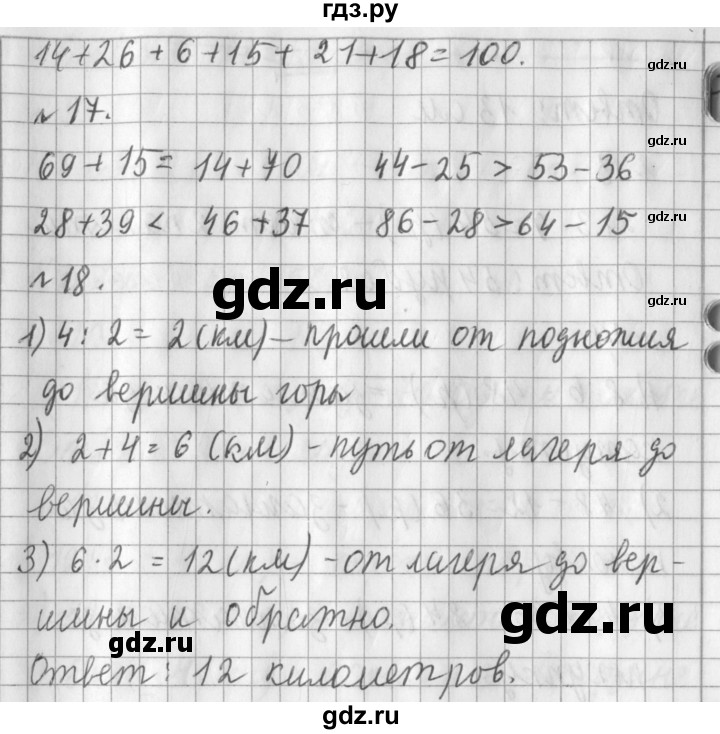 гдз.ру
14+26+6+15+21+18=100.
gdz.ru
№17.
gdz.ru
69+15=14+70 44-25>53-36
gdz.ru
28+39<46+37 86-28>64-15
gdz.ru
№18.
gdz.ru
gdz.ru
1) 4:2=2(км)-прошли от подножия
до вершины горы
2) 2+4=6 (км)-путь от лагеря до
вершины.
gdz.ru
3) 6·2=12(км)-от лагеря до вер-
шины и обратно.
gdz.ru
gdz.ru
Ответ: 12 километров.
gdz.ru